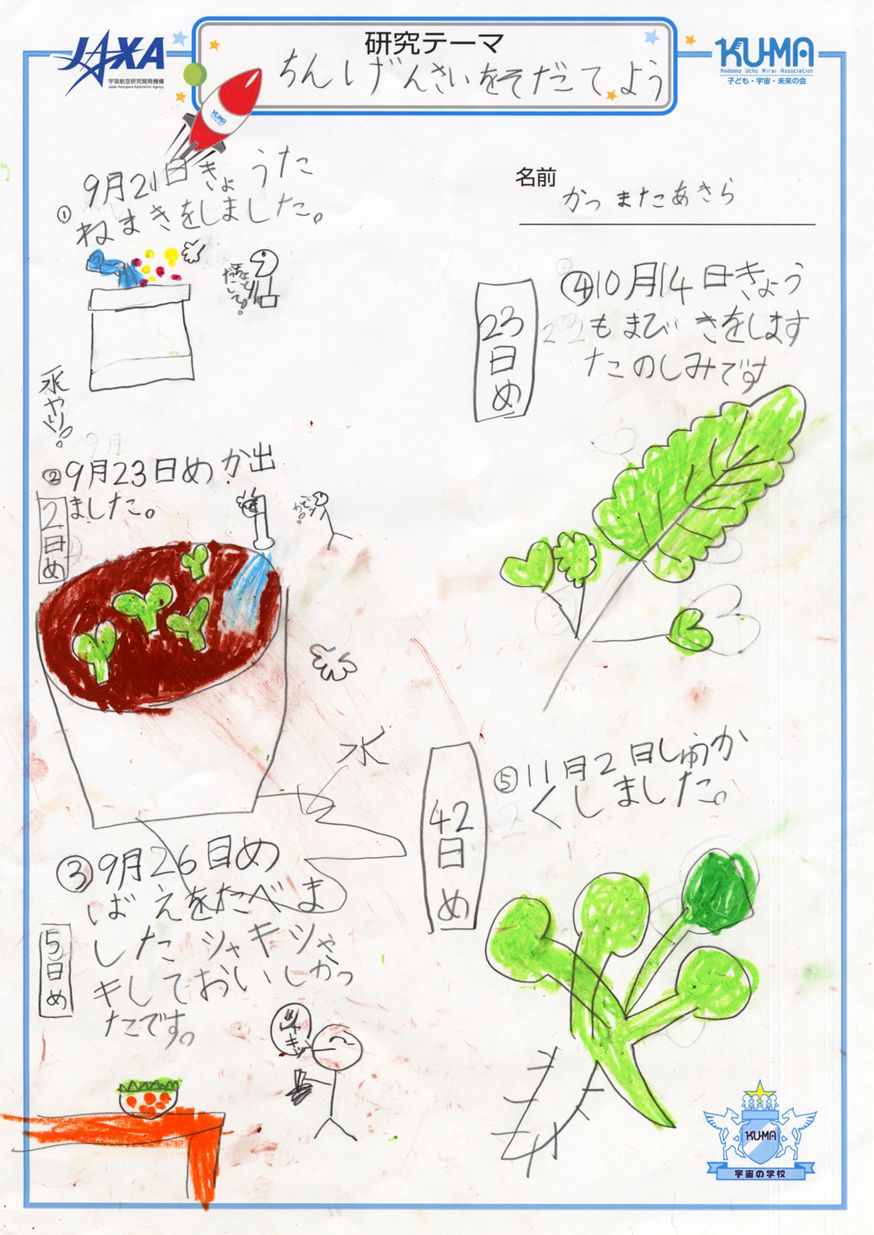 JAXA
宇宙航空研究開発機構
Japan Aerospace Exploration Agency
研究テーマ
ちんげんさいをそだてよう
KU-MA
Kodomo Uchu Mirai Association
子ども・宇宙・未来の会
KU-MA
名前
かつまたあきら
① 9月21日きょうた
ねまきをしました。
水やり!
② 9月23日めが出
ました。
2日め
水
③ 9月26日め
ばえをたべま
した シャキシャ
キしておいしかっ
たです。
5日め
シャキッ
④ 10月14日きょう
もまびきをします
たのしみです
23日め
⑤ 11月2日しゅうか
くしました。
42日め
KU-MA
宇宙の学校